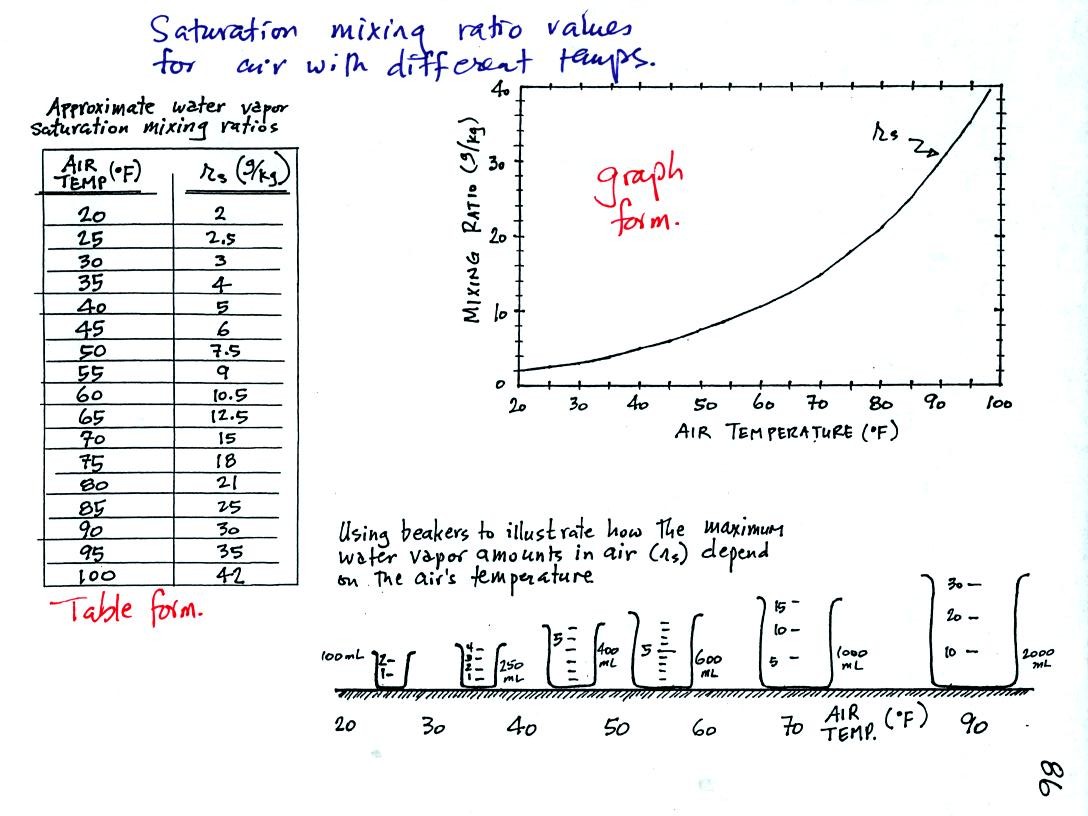 Saturation mixing ratio values
for air with different temps.
Approximate water vapor
saturation mixing ratios
AIR TEMP (°F) rs (g/kg)
20 2
25 2.5
30 3
35 4
40 5
45 6
50 7.5
55 9
60 10.5
65 12.5
70 15
75 18
80 21
85 25
90 30
95 35
100 42
Table form.
MIXING RATIO (g/kg)
40
30
20
10
0
rs
graph
form.
20 30 40 50 60 70 80 90 100
AIR TEMPERATURE (°F)
Using beakers to illustrate how the maximum
water vapor amounts in air (rs) depend
on the air's temperature
100 mL
2
1
4
3
2
1
250
mL
5
400
mL
5
600
mL
15
10
5
1000
mL
30
20
10
2000
mL
20 30 40 50 60 70 AIR TEMP. (°F) 90
98